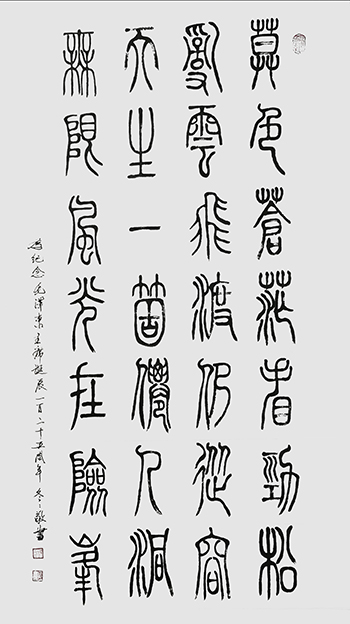 莫色蒼茫看勁松
亂雲飛渡仍從容
天生一箇僊人洞
無限風光在險峯
為紀念毛澤東主席誕辰一百二十五周年 敬書